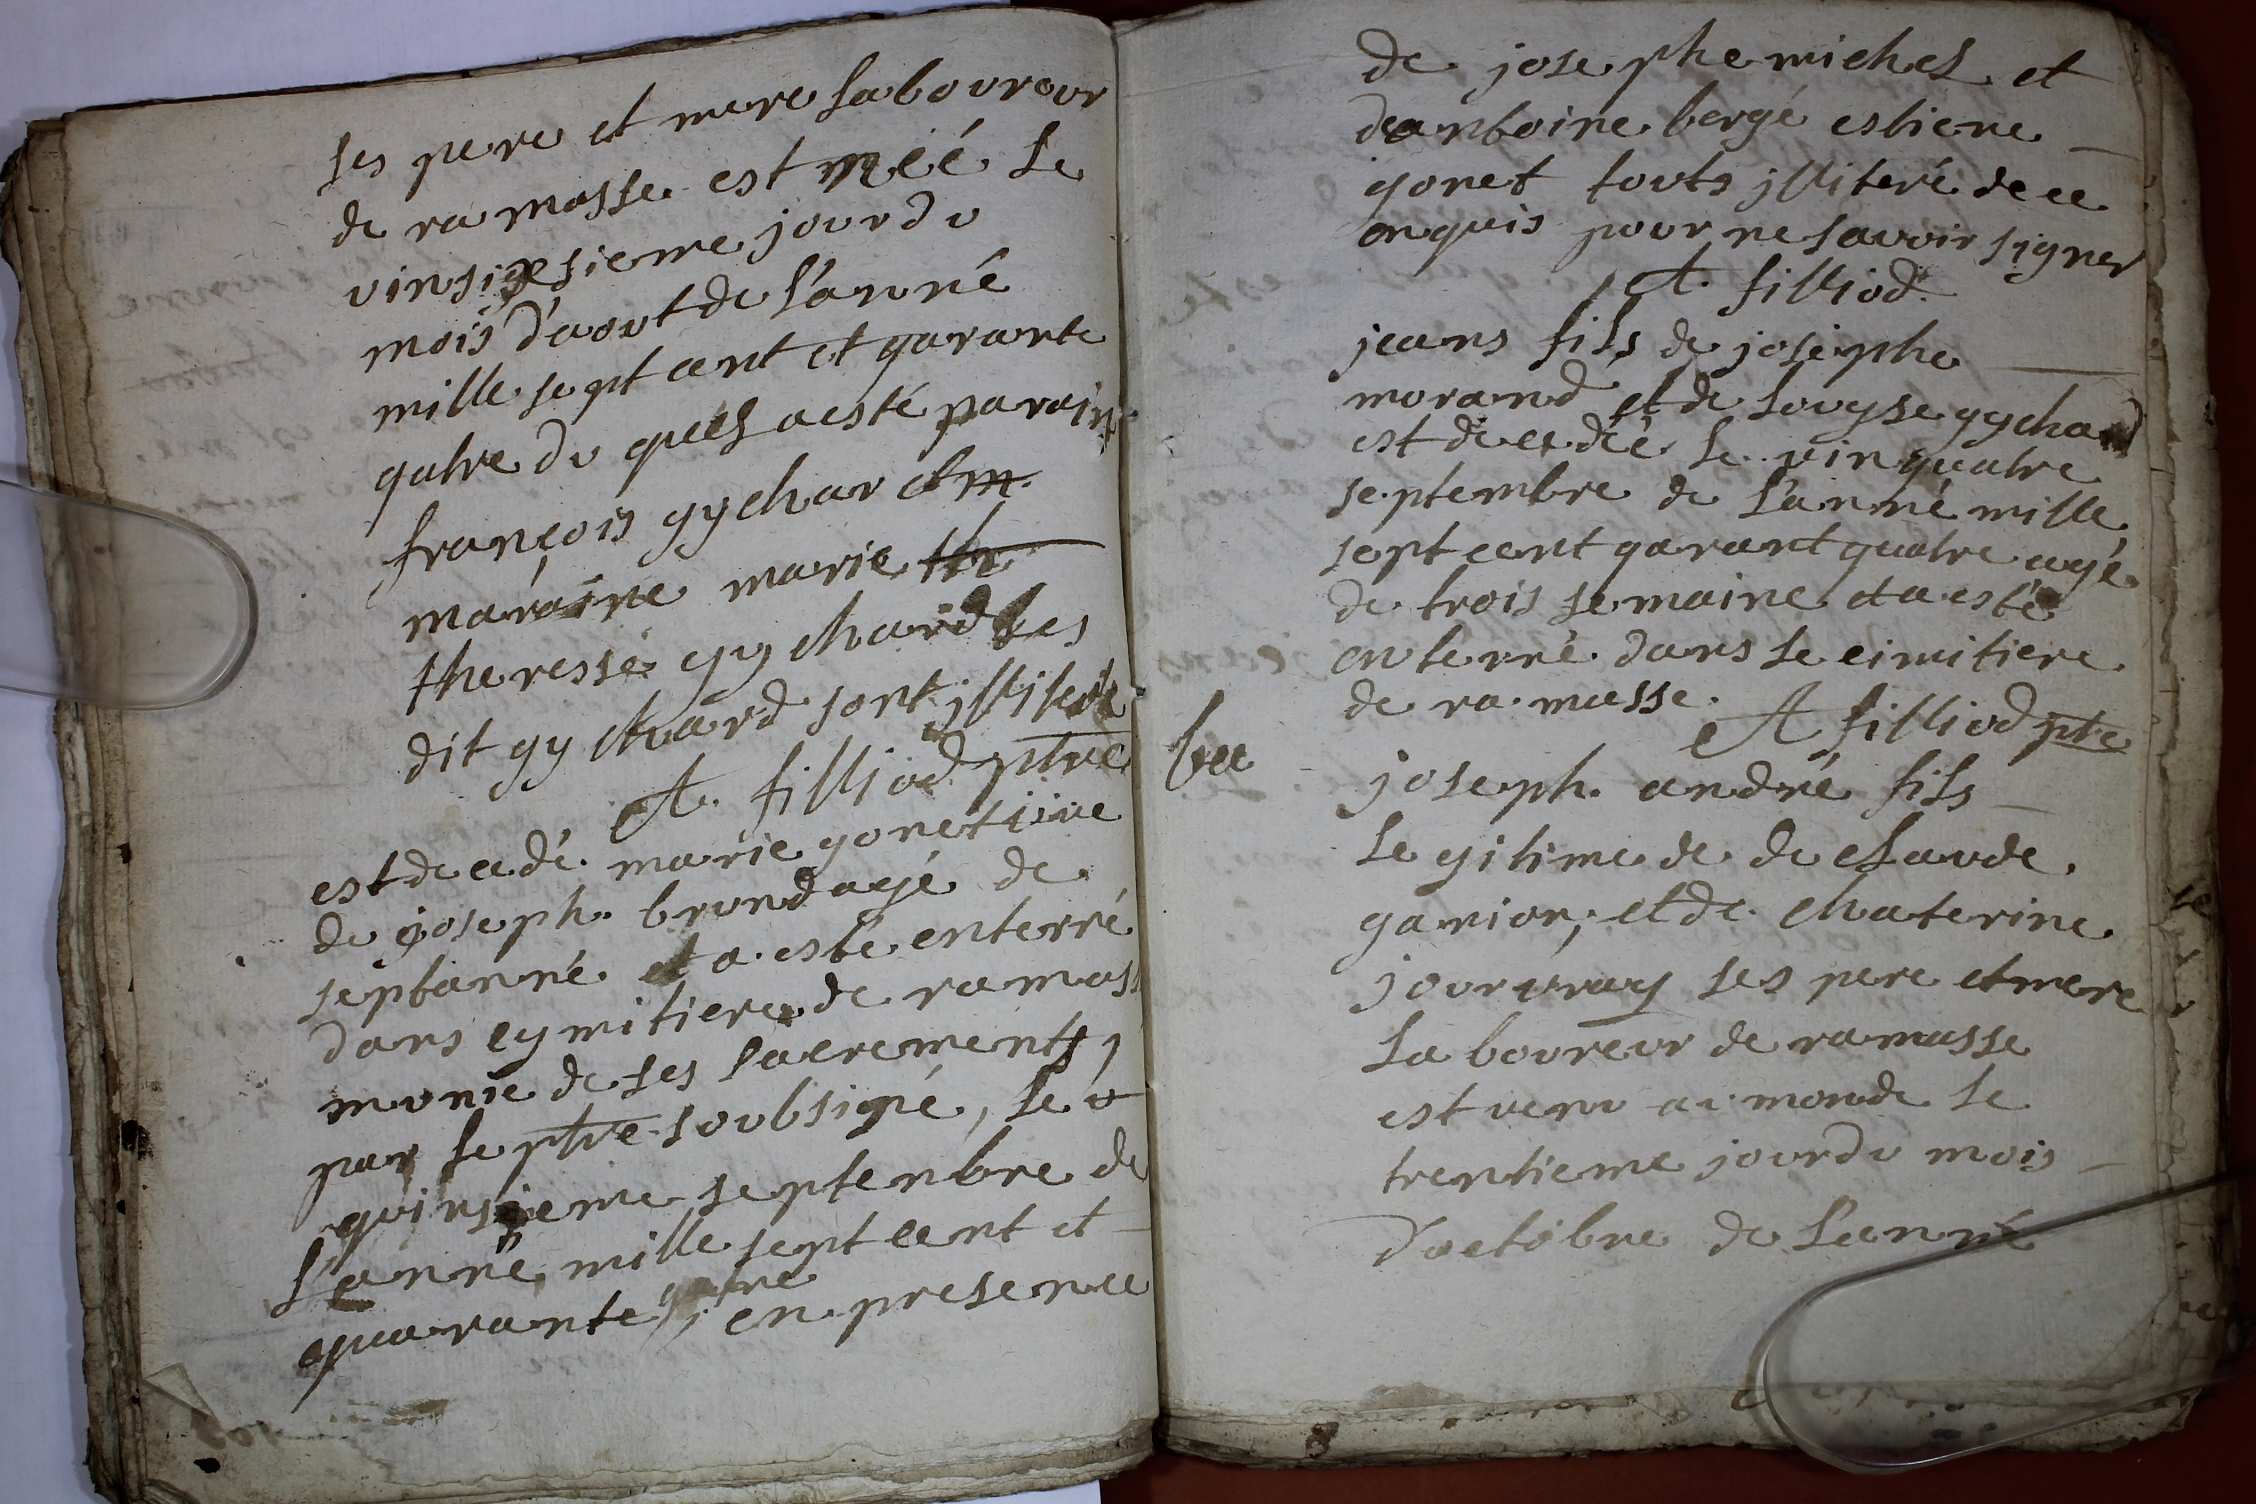 ses pere et mere laboureur
de ramasse est néé le
vinsisesieme jour du
mois d'aout de l'anné
mille sept cent et qarante
qatre du quel a esté parain
françois gychar et m.
maraine marie the
theresse gychard les
dit gychard sont illiteré
A. filliod ptre
est decedé marie gonet
de joseph. brund agé de
septanné et a esté enterré
dans cymitiere de ramass
munie de ses sacrements,
par le ptre soubsigné, le
quinsieme septenbre de
l'anné mille sept cent et
quarante qatre, en presence
de josephe michel et
deantoine bergé estiene
gonet touts illiteré de ce
enquis pour ne savoir signer
A. filliod
jeans fils de josephe
morand et de louyse gychard
est decedé le vinquatre
septembre de l'anné mille
sept cent qarant quatre agé
de trois semaine et a esté
enterré dans le cimitiere
de ramasse.
A filliod ptre
joseph. andré fils
legitime de de claude
garion, et de chaterine
jourvray ses pere et mere
laboureur de ramasse
est venu au monde le
trentieme jour du mois
d'octobre de l'anné
8